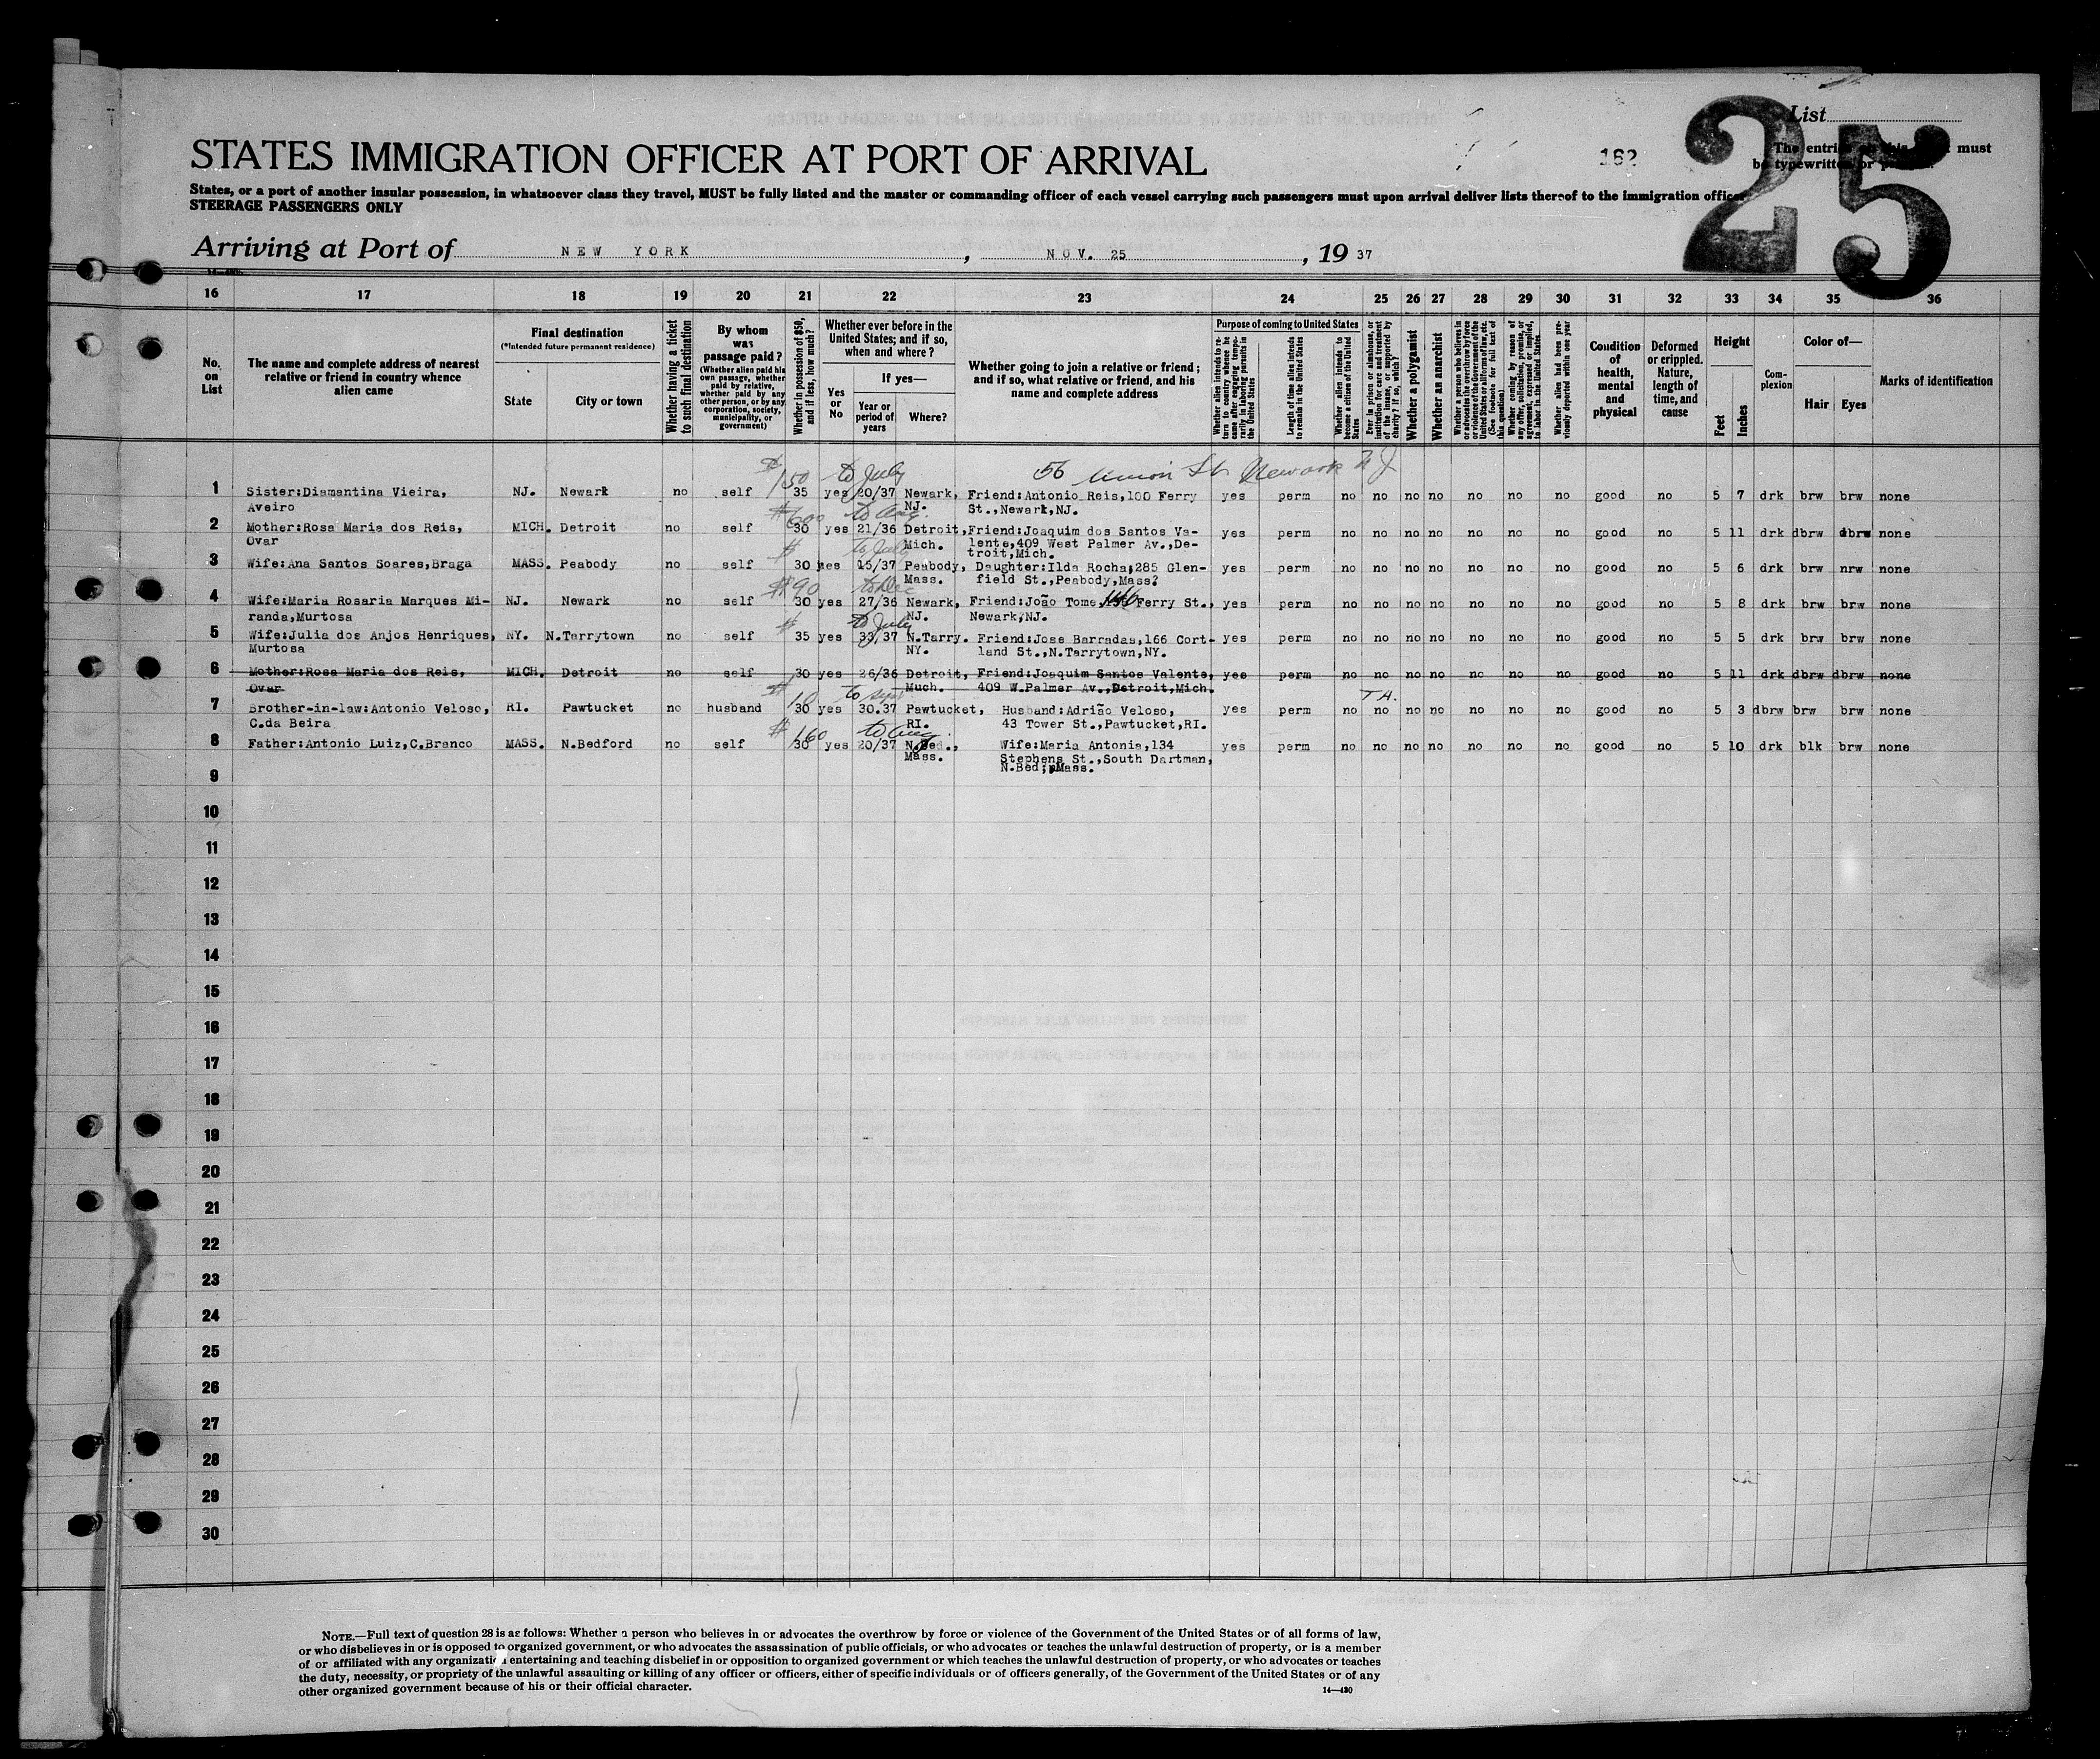 List
25
162
The entri must
be typewritte or p
STATES IMMIGRATION OFFICER AT PORT OF ARRIVAL
States, or a port of another insular possession, in whatsoever class they travel, MUST be fully listed and the master or commanding officer of each vessel carrying such passengers must upon arrival deliver lists thereof to the immigration officer
STEERAGE PASSENGERS ONLY
Arriving at Port of NEW YORK, NOV. 25, 1937
16 17 18 19 20 21 22 23 24 25 26 27 28 29 30 31 32 33 34 35 36
No. on List
The name and complete address of nearest relative or friend in country whence alien came
Final destination
(*Intended future permanent residence)
State
City or town
Whether having a ticket to such final destination
By whom was passage paid?
(Whether alien paid his own passage, whether paid by relative, whether paid by any other person, or by any corporation, society, municipality, or government)
Whether in possession of $50, and if less, how much?
Whether ever before in the United States; and if so, when and where?
Yes or No
If yes—
Year or period of years
Where?
Whether going to join a relative or friend; and if so, what relative or friend, and his name and complete address
Purpose of coming to United States
Whether alien intends to return to country whence he came after engaging temporarily in laboring pursuits in the United States
Length of time alien intends to remain in the United States
Whether alien intends to become a citizen of the United States
Ever in prison or almshouse, or institution for care and treatment of the insane, or supported by charity? If so, which?
Whether a polygamist
Whether an anarchist
Whether a person who believes in or advocates the overthrow by force or violence of the Government of the United States or all forms of law, etc. (See footnote for full text of this question)
Whether coming by reason of any offer, solicitation, promise, or agreement, expressed or implied, to labor in the United States
Whether alien had been previously deported within one year
Condition of health, mental and physical
Deformed or crippled. Nature, length of time, and cause
Height
Feet
Inches
Complexion
Color of—
Hair
Eyes
Marks of identification
$ 150 to July 56 Union St Newark N J
1 Sister:Diamantina Vieira, NJ. Newark no self 35 yes 20/37 Newark, Friend:Antonio Reis,100 Ferry yes perm no no no no no no no good no 5 7 drk brw brw none
Aveiro NJ. St.,Newark,NJ.
$600 to Aug.
2 Mother:Rosa Maria dos Reis, MICH. Detroit no self 30 yes 21/36 Detroit, Friend:Joaquim dos Santos Va- yes perm no no no no no no no good no 5 11 drk dbrw dbrw none
Ovar Mich. lente,409 West Palmer Av.,De-
troit,Mich.
$ to July
3 Wife:Ana Santos Soares,Braga MASS. Peabody no self 30 yes 15/37 Peabody, Daughter:Ilda Rocha,285 Glen- yes perm no no no no no no no good no 5 6 drk brw nrw none
Mass. field St.,Peabody,Mass?
$90 to Dec
4 Wife:Maria Rosaria Marques Mi- NJ. Newark no self 30 yes 27/36 Newark, Friend:João Tome, 146 Ferry St., yes perm no no no no no no no good no 5 8 drk brw brw none
randa,Murtosa NJ. Newark,NJ.
$ to July
5 Wife:Julia dos Anjos Henriques, NY. N.Tarrytown no self 35 yes 33/37 N.Tarry. Friend:Jose Barradas,166 Cort- yes perm no no no no no no no good no 5 5 drk brw brw none
Murtosa NY. land St.,N.Tarrytown,NY.
6 Mother:Rosa Maria dos Reis, MICH. Detroit no self 30 yes 26/36 Detroit, Friend:Joaquim Santos Valente, yes perm no no no no no no no good no 5 11 drk dbrw dbrw none
Ovar Much. 409 W.Palmer Av.,Detroit,Mich.
$ 10 to T A.
7 Brother-in-law:Antonio Veloso, RI. Pawtucket no husband 30 yes 30.37 Pawtucket, Husband:Adrião Veloso, yes perm no no no no no no no good no 5 3 dbrw brw brw none
C.da Beira RI. 43 Tower St.,Pawtucket,RI.
$ 160 to Aug.
8 Father:Antonio Luiz,C.Branco MASS. N.Bedford no self 30 yes 20/37 N.Bed., Wife:Maria Antonia,134 yes perm no no no no no no no good no 5 10 drk blk brw none
Mass. Stephens St.,South Dartman,
N.Bed; Mass.
9
10
11
12
13
14
15
16
17
18
19
20
21
22
23
24
25
26
27
28
29
30
NOTE.—Full text of question 28 is as follows: Whether a person who believes in or advocates the overthrow by force or violence of the Government of the United States or of all forms of law,
or who disbelieves in or is opposed to organized government, or who advocates the assassination of public officials, or who advocates or teaches the unlawful destruction of property, or is a member
of or affiliated with any organization entertaining and teaching disbelief in or opposition to organized government or which teaches the unlawful destruction of property, or who advocates or teaches
the duty, necessity, or propriety of the unlawful assaulting or killing of any officer or officers, either of specific individuals or of officers generally, of the Government of the United States or of any
other organized government because of his or their official character.
14—480